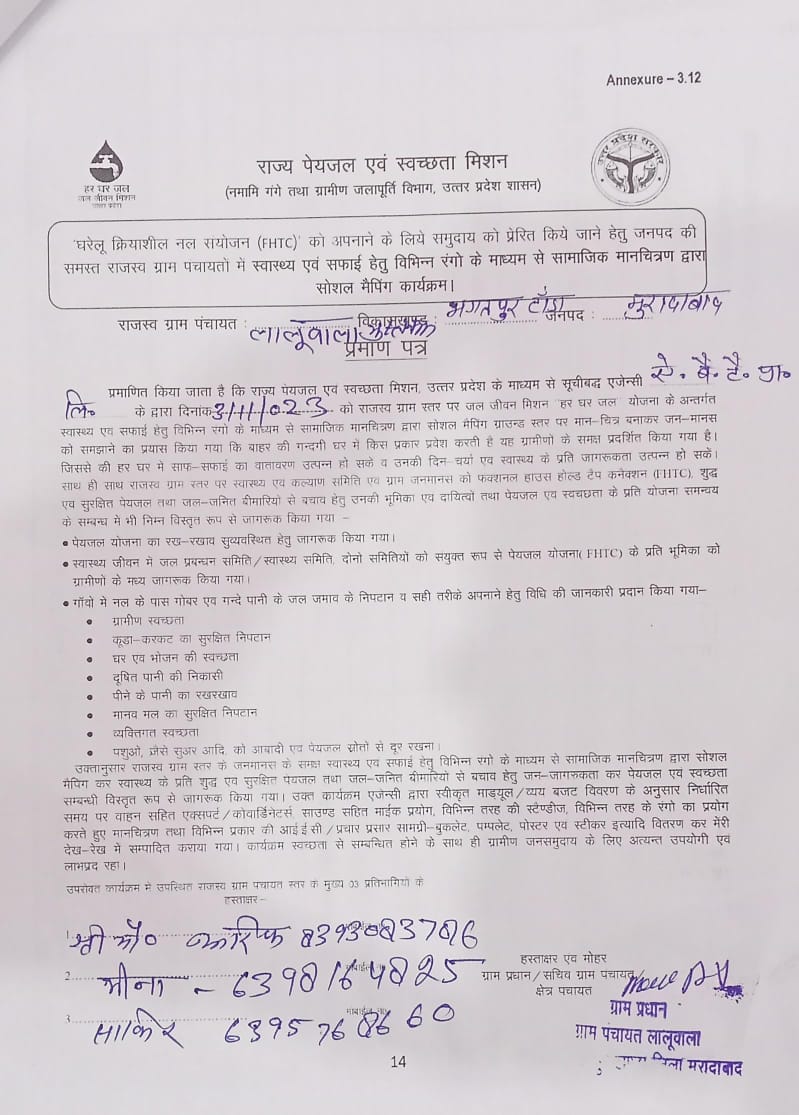 Annexure – 3.12
हर घर जल
जल जीवन मिशन
उत्तर प्रदेश सरकार
राज्य पेयजल एवं स्वच्छता मिशन
(नमामि गंगे तथा ग्रामीण जलापूर्ति विभाग, उत्तर प्रदेश शासन)
'घरेलू क्रियाशील नल संयोजन (FHTC)' को अपनाने के लिये समुदाय को प्रेरित किये जाने हेतु जनपद की
समस्त राजस्व ग्राम पंचायतो में स्वास्थ्य एवं सफाई हेतु विभिन्न रंगो के माध्यम से सामाजिक मानचित्रण द्वारा
सोशल मैपिंग कार्यक्रम।
राजस्व ग्राम पंचायत : लालूवाला विकासखण्ड : भगतपुर टाँडा जनपद : मुरादाबाद
प्रमाण पत्र
प्रमाणित किया जाता है कि राज्य पेयजल एवं स्वच्छता मिशन, उत्तर प्रदेश के माध्यम से सूचीबद्व एजेन्सी से. बै. टै. प्रा०
लि० के द्वारा दिनांक को राजस्व ग्राम स्तर पर जल जीवन मिशन "हर घर जल" योजना के अन्तर्गत
स्वास्थ्य एवं सफाई हेतु विभिन्न रंगो के माध्यम से सामाजिक मानचित्रण द्वारा सोशल मैपिंग ग्राउन्ड स्तर पर मान–चित्र बनाकर जन–मानस
को समझाने का प्रयास किया गया कि बाहर की गन्दगी घर में किस प्रकार प्रवेश करती है यह ग्रामीणों के समक्ष प्रदर्शित किया गया है।
जिससे की हर घर में साफ–सफाई का वातावरण उत्पन्न हो सकें व उनकी दिन–चर्या एवं स्वास्थ्य के प्रति जागरूकता उत्पन्न हो सकें।
साथ ही साथ राजस्व ग्राम स्तर पर स्वास्थ्य एवं कल्याण समिति एवं ग्राम जनमानस को फक्शनल हाउस होल्ड टैप कनेक्शन (FHTC), शुद्ध
एवं सुरक्षित पेयजल तथा जल–जनित बीमारियों से बचाव हेतु उनकी भूमिका एवं दायित्वों तथा पेयजल एवं स्वचछता के प्रति योजना समन्वय
के सम्बन्ध में भी निम्न विस्तृत रूप से जागरूक किया गया –
• पेयजल योजना का रख–रखाव सुव्यवस्थित हेतु जागरूक किया गया।
• स्वास्थ्य जीवन में जल प्रबन्धन समिति/स्वास्थ्य समिति, दोनो समितियों को संयुक्त रूप से पेयजल योजना( FHTC) के प्रति भूमिका को
ग्रामीणों के मध्य जागरूक किया गया।
• गाँवो में नल के पास गोबर एवं गन्दे पानी के जल जमाव के निपटान व सही तरीके अपनाने हेतु विधि की जानकारी प्रदान किया गया–
• ग्रामीण स्वच्छता
• कूडा–करकट का सुरक्षित निपटान
• घर एवं भोजन की स्वच्छता
• दूषित पानी की निकासी
• पीने के पानी का रखरखाव
• मानव मल का सुरक्षित निपटान
• व्यक्तिगत स्वच्छता
• पशुओ, जैसे सुअर आदि, को आबादी एव पेयजल स्रोतो से दूर रखना।
उक्तानुसार राजस्व ग्राम स्तर के जनमानस के समक्ष स्वास्थ्य एवं सफाई हेतु विभिन्न रंगो के माध्यम से सामाजिक मानचित्रण द्वारा सोशल
मैपिंग कर स्वास्थ्य के प्रति शुद्व एवं सुरक्षित पेयजल तथा जल–जनित बीमारियों से बचाव हेतु जन–जागरूकता कर पेयजल एवं स्वच्छता
सम्बन्धी विस्तृत रूप से जागरूक किया गया। उक्त कार्यक्रम एजेन्सी द्वारा स्वीकृत माड्यूल/व्यय बजट विवरण के अनुसार निर्धारित
समय पर वाहन सहित एक्सपर्ट/कोवार्डिनेटर्स, साउण्ड सहित माईक प्रयोग, विभिन्न तरह की स्टैण्डीज, विभिन्न तरह के रंगो का प्रयोग
करते हुए मानचित्रण तथा विभिन्न प्रकार की आई.ई.सी./प्रचार प्रसार सामग्री–बुकलेट, पम्पलेट, पोस्टर एव स्टीकर इत्यादि वितरण कर मेरी
देख–रेख में सम्पादित कराया गया। कार्यक्रम स्वच्छता से सम्बन्धित होने के साथ ही ग्रामीण जनसमुदाय के लिए अत्यन्त उपयोगी एवं
लाभप्रद रहा।
उपरोक्त कार्यक्रम मे उपस्थित राजस्व ग्राम पंचायत स्तर के मुख्य 03 प्रतिनागियो के
हस्ताक्षर–
1. श्री मौ०
2. मीना – 6398164825
3. साकिर 6395768660
हस्ताक्षर एवं मोहर
ग्राम प्रधान/सचिव ग्राम पंचायत
क्षेत्र पंचायत
ग्राम प्रधान
ग्राम पंचायत लालूवाला
जिला मुरादाबाद
14